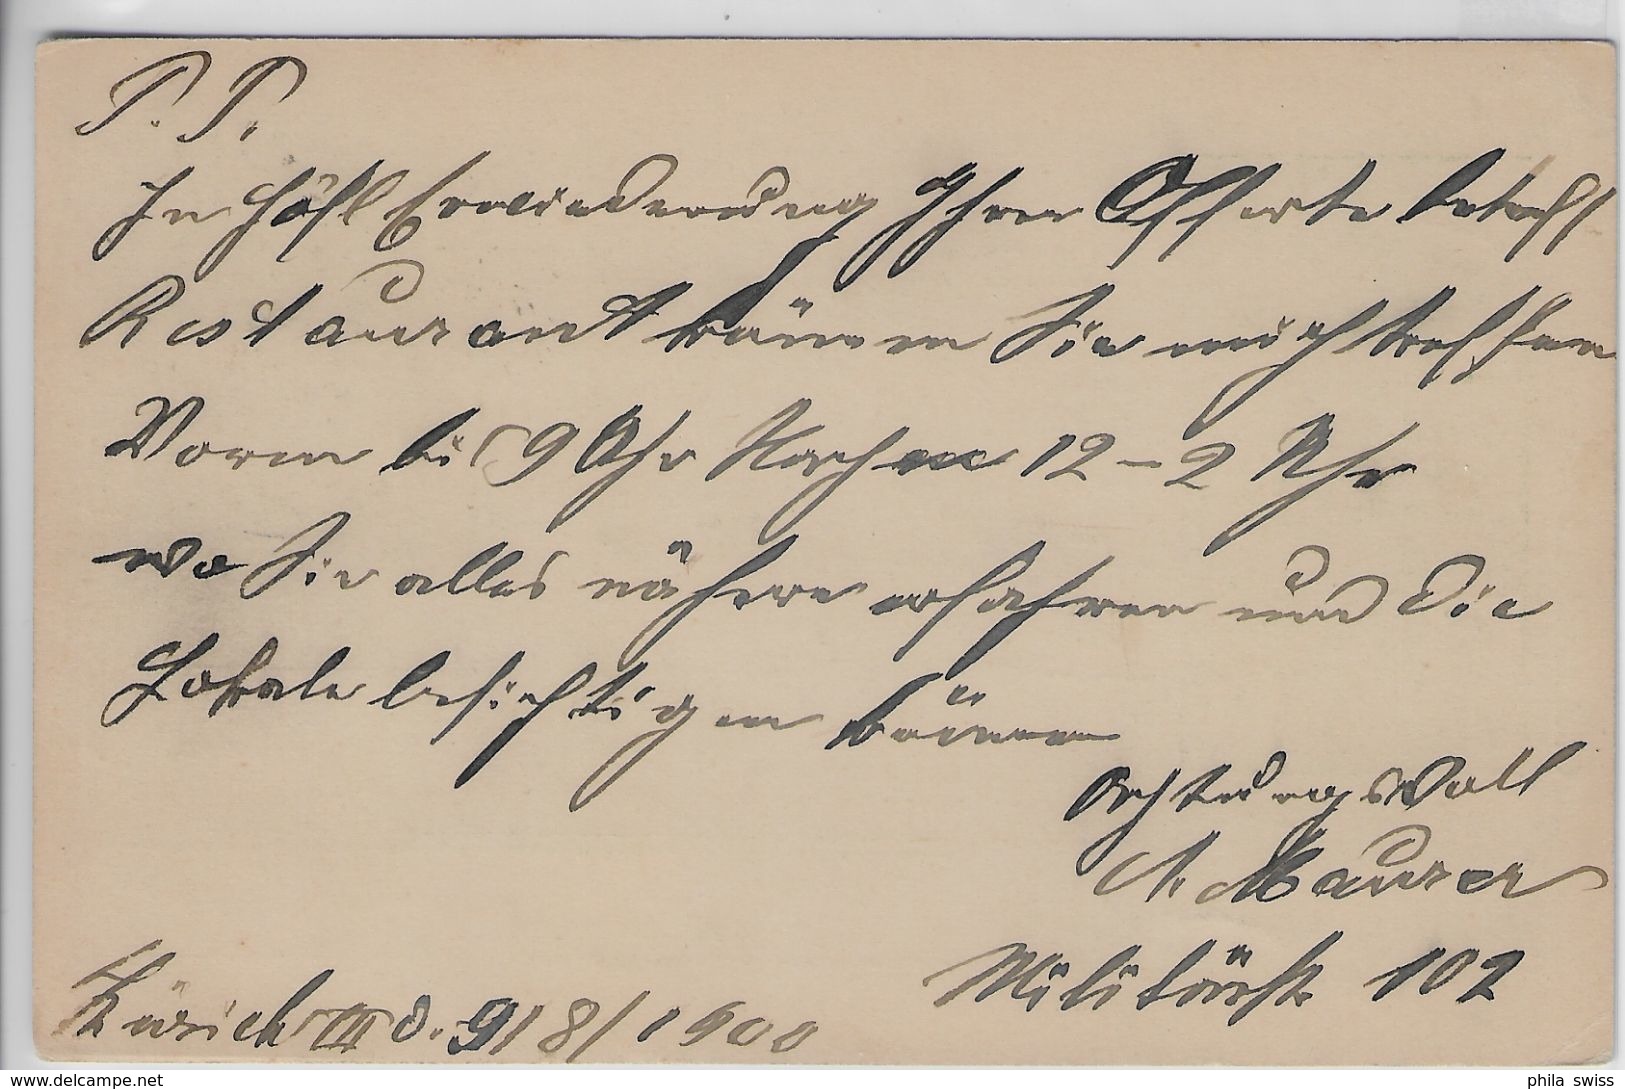 P. P.
In höfl Erwiederung Ihrer Offerte betreff
Restaurant können Sie mich treffen
Vorm bis 9 Uhr Nachm 12 – 2 Uhr
wo Sie alles nähere erfahren und die
Lokale besichtigen können
Achtungsvoll
A. Maurer
Militärstr 102
Zürich III d. 9/8/1900
phila swiss